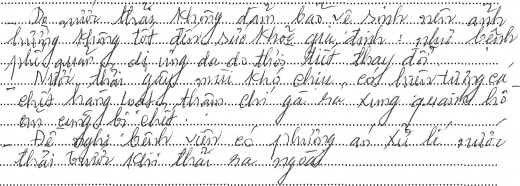 - Do nước thải không đảm bảo vệ sinh nên ảnh
hưởng không tốt đến sức khoẻ gia đình : như bệnh
phế quản, dị ứng da do thời tiết thay đổi.
- Nước thải gây mùi khó chịu, có hiện tượng cá
chết hàng loạt, thậm chí gà ra xung quanh hồ
ăn cũng bị chết.
- Đề nghị bệnh viện có phương án xử lí nước
thải trước khi thải ra ngoài